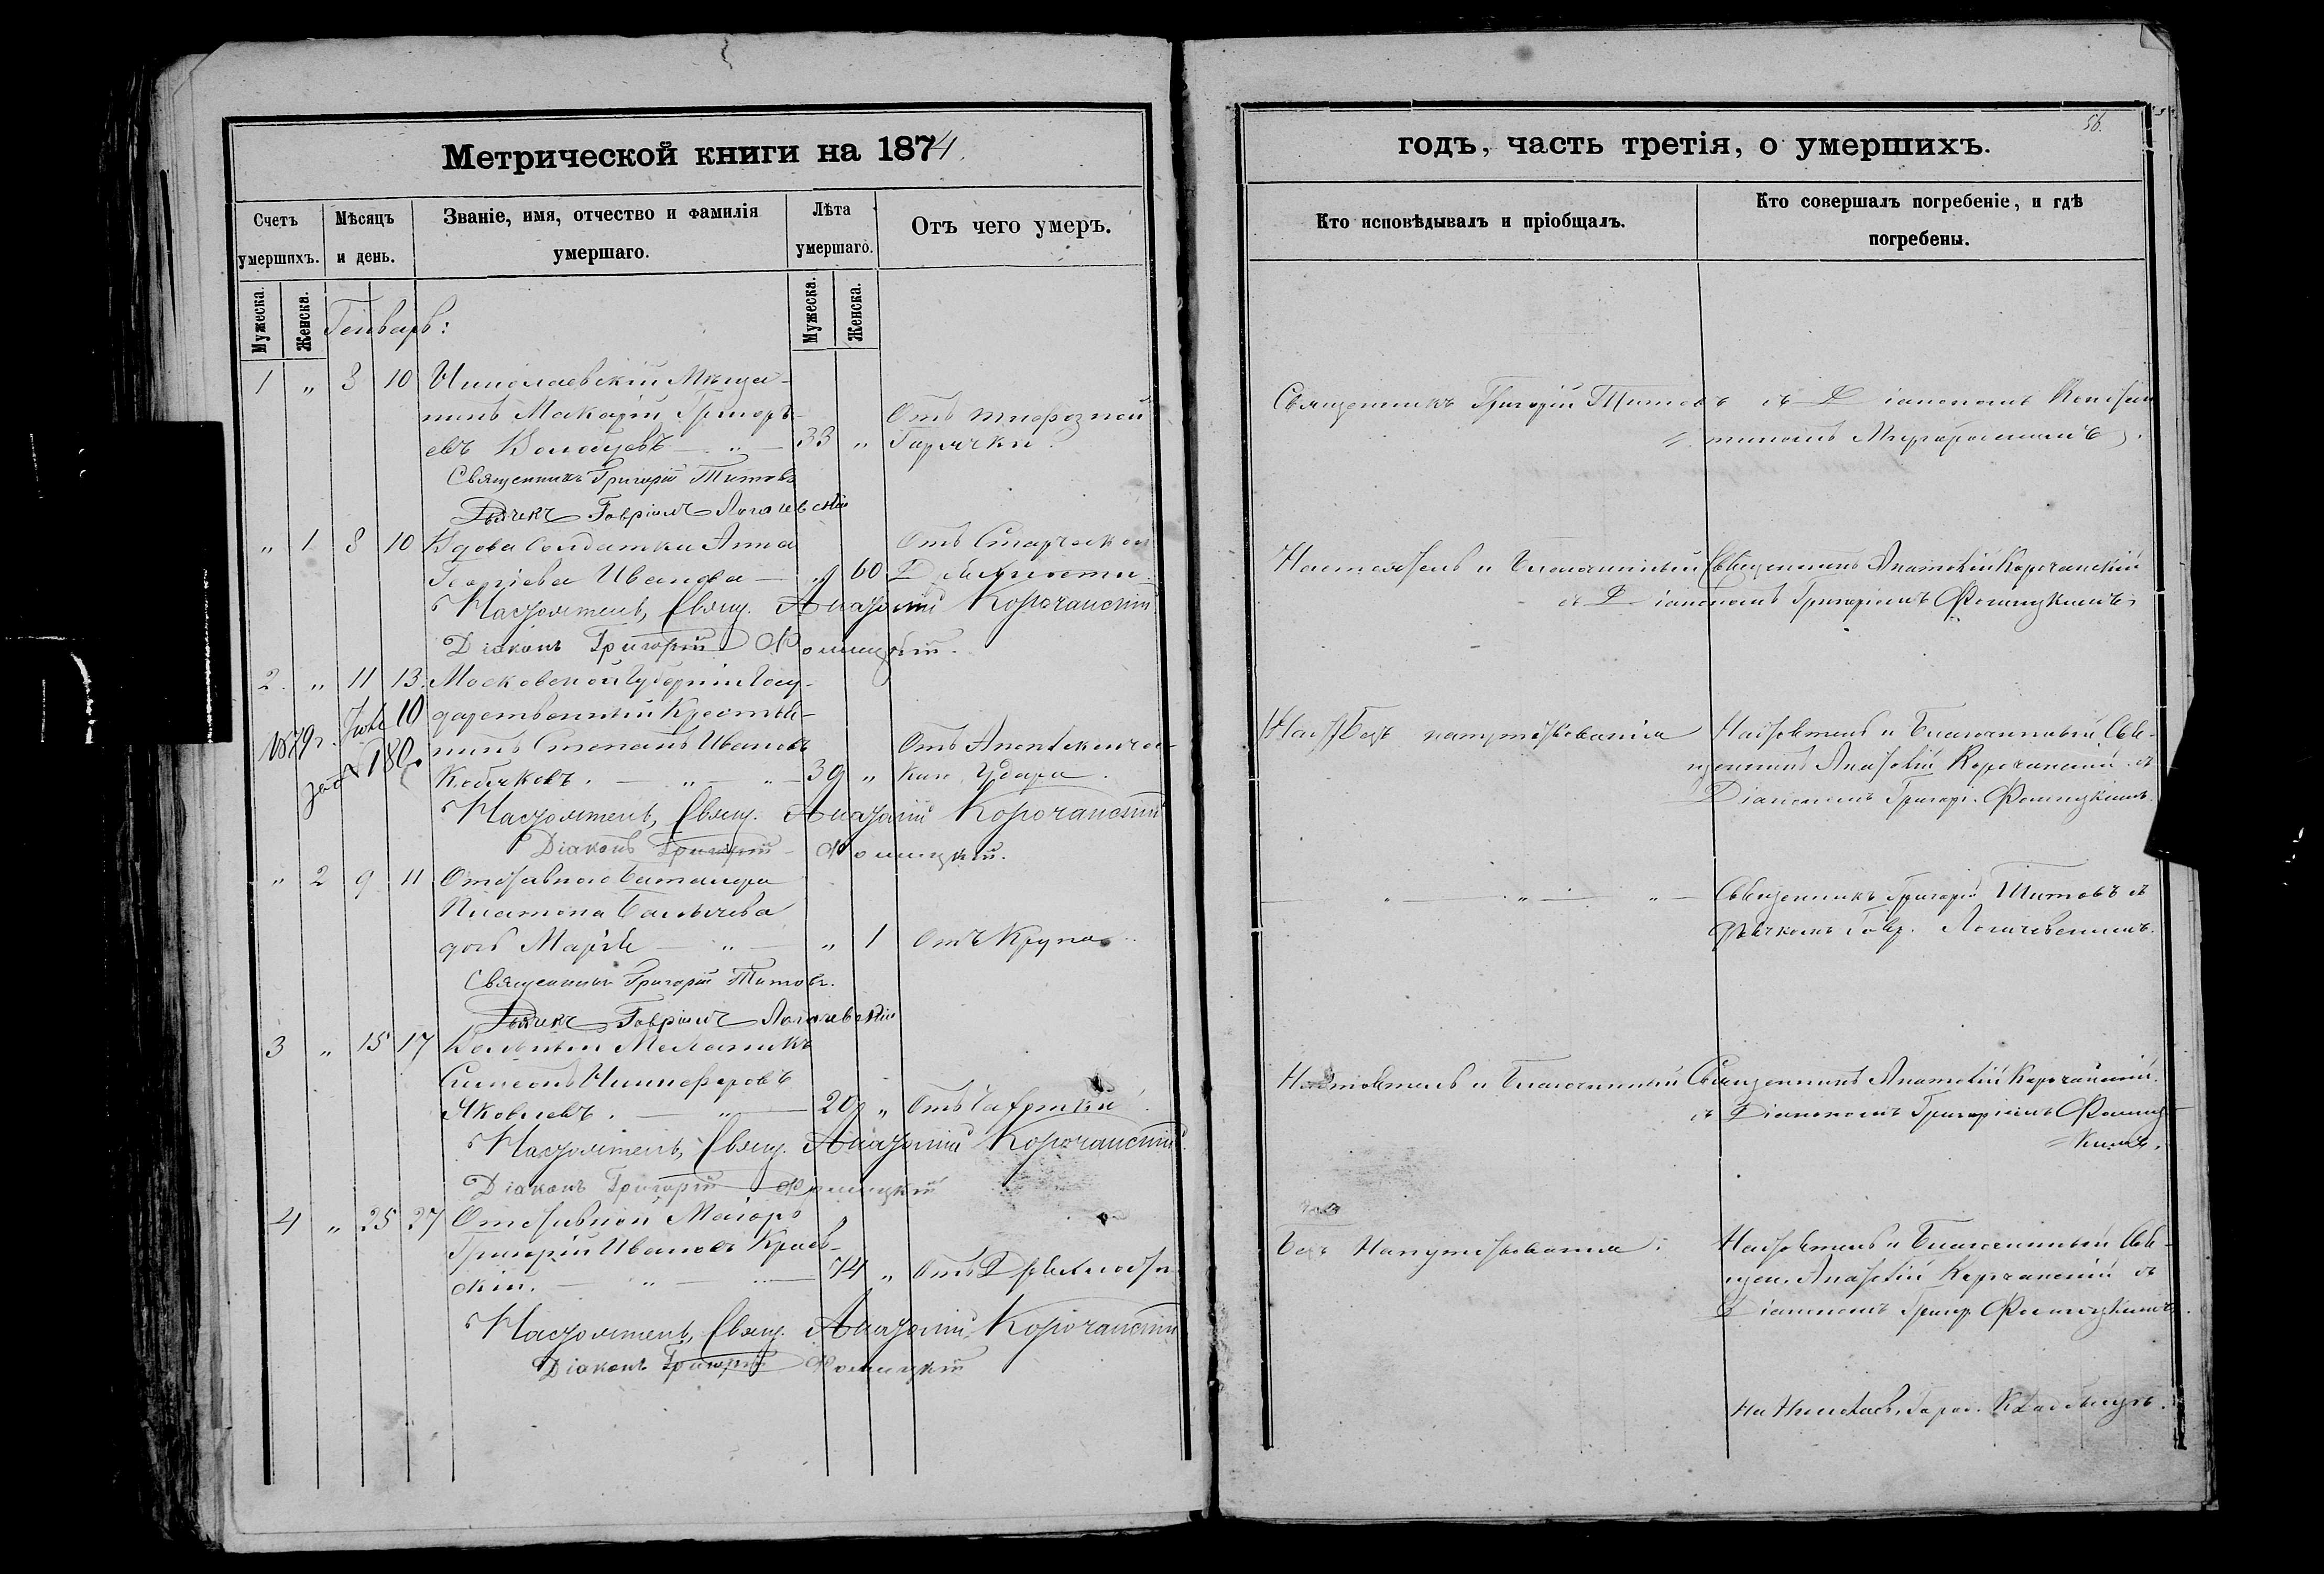 Метрической книги на 1874.
Счетъ умершихъ.
Мѣсяцъ и день.
Званіе, имя, отчество и фамилія умершаго.
Лѣта умершаго.
Отъ чего умеръ.
Мужеска.
Женска.
Мужеска.
Женска.
Генварь:
1 " 8 10 Николаевскій Мѣща-
нинъ Макарій Григорь- Отъ тифозной
евъ 33 " Горячки.
Священникъ Григорій Титовъ
Дьячекъ Гавріилъ
" 1 8 10 Вдова Солдатка Анна Отъ Старческой
Георгіева Иванова — " 60 Дряхлости.
Настоятель, Свящ. Анатолій Корочанскій
Діаконъ Григорій Фомицкій.
2. " 11 13. Московской Губерніи Госу-
дарственный Крестья-
нинъ Степанъ Ивановъ Отъ Апоплекичес-
39 " каго Удара.
1879 г. Іюля 10
за № 180.
Настоятель, Свящ. Анатолій Корочанскій
Діаконъ Григорій Фомицкій.
" 2 9 11 Отставнаго Баталера
Платона
дочь Марія — " — " 1 Отъ Крупа.
Священникъ Григорій Титовъ.
Дьячекъ Гавріилъ
3 " 15 17 Вольный Механикъ
Симеонъ
Яковлевъ. — " — 20 " Отъ Чахотки.
Настоятель, Свящ. Анатолій Корочанскій
Діаконъ Григорій Фомицкій
4 " 25 27 Отставной Маіоръ
Григорій Ивановъ Краев-
скій. — " — 74 " Отъ Дряхлости
Настоятель, Свящ. Анатолій Корочанскій
Діаконъ Григорій Фомицкій
56.
годъ, часть третія, о умершихъ.
Кто исповѣдывалъ и пріобщалъ.
Кто совершалъ погребеніе, и гдѣ погребены.
Священникъ Григорій Титовъ съ Діакономъ Констан-
тиномъ
Настоятель и Благочинный Священникъ Анатолій Корочанскій
съ Діакономъ Григоріемъ Фомицкимъ
Безъ напутствованія Настоятель и Благочинный Свя-
щенникъ Анатолій Корочанскій съ
Діакономъ Григорі. Фомицкимъ.
— " — " — " — Священникъ Григорій Титовъ съ
Дьячкомъ Гавр.
Настоятель и Благочинный Священникъ Анатолій Корочанскій
съ Діакономъ Григоріемъ Фомиц-
кимъ.
Безъ Напутствованія. Настоятель и Благочинный Свя-
щен. Анатолій Корочанскій съ
Діакономъ Григор. Фомицкимъ.
На Николаев. Город. Кладбищѣ.